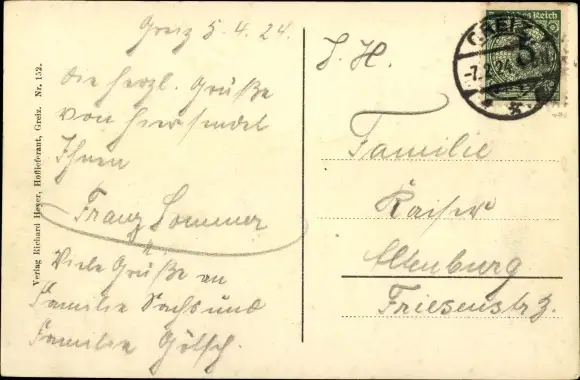 Greiz 5.4.24
Die herzl. Grüße
von hier sendet
Ihnen
Franz Sommer
Viele Grüße an
Familie Sachs und
Familie Götsch.
Verlag Richard Heyer, Hoflieferant, Greiz. Nr. 152.
Deutsches Reich
5
GREIZ
-7.4.24
S. H.
Familie
Kaiser
Altenburg
Friesenstr. 3.